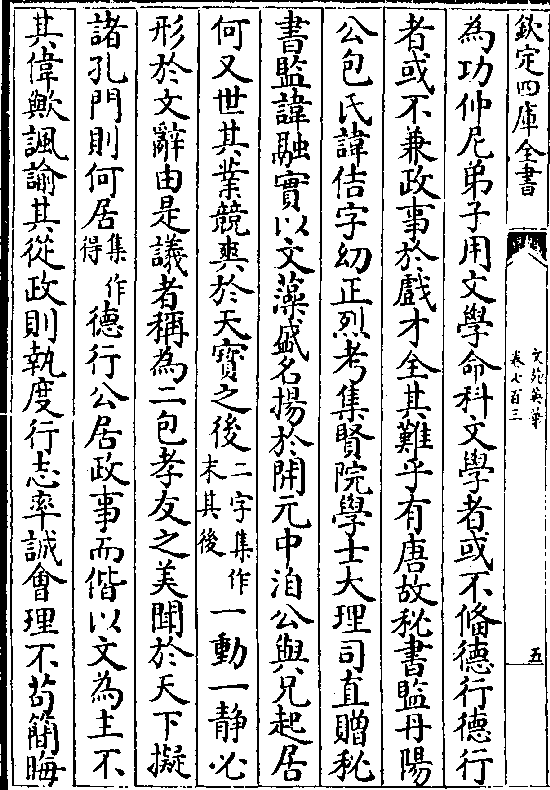 欽定四庫全書
文苑英華
卷七百三
五
為功仲尼弟子用文學命科文學者或不備德行德行
者或不兼政事於戲才全其難乎有唐故秘書監丹陽
公包氏諱佶字幼正烈考集賢院學士大理司直贈秘
書監諱融實以文藻盛名揚於開元中洎公與兄起居
何又世其業競爽於天寶之後二字集作末其後一動一静必
形於文辭由是議者稱為二包孝友之美聞於天下擬
諸孔門則何居集作得德行公居政事而偕以文為主不
其偉歟諷諭其從政則執度行志率誠會理不苟簡晦